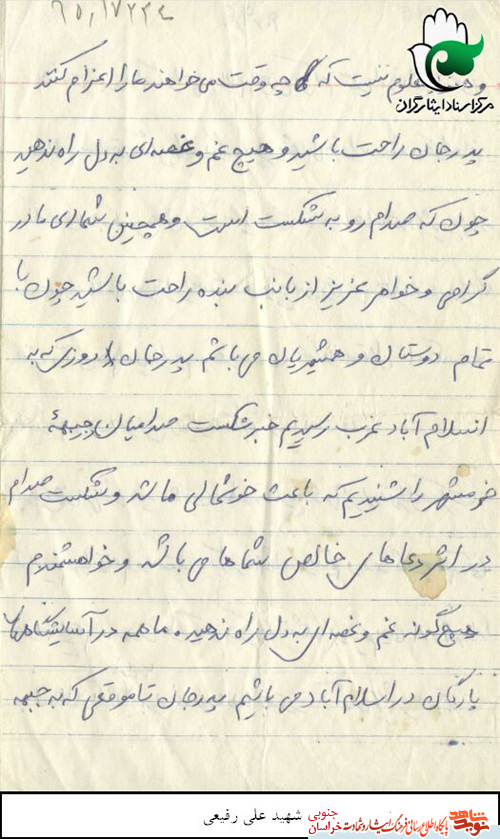 ۶۵,۱۷۲۳۴
مرکز اسناد ایثارگران
و هنوز معلوم نیست که چه وقت می‌خواهند ما را اعزام کنند
پدرجان راحت باشید و هیچ غم و غصه‌ای به دل راه ندهید
چون که صدام رو به شکست است و همچنین شما ای مادر
گرامی و خواهر عزیز از بابت بنده راحت باشید چون با
تمام دوستان و همشهریان می باشم پدرجان روزی که به
اسلام آباد غرب رسیدیم خبر شکست صدامیان در جبههٔ
خرمشهر را شنیدیم که باعث خوشحالی ما شد و شکست صدام
در اثر دعاهای خالص شماها می باشد و خواهشمندم
هیچ گونه غم و غصه‌ای به دل راه ندهید. ما همه در آسایشگاههای
پادگان در اسلام آباد می باشیم پدرجان تا موقعی که به جبهه
شهید علی رفیعی
نوید شاهد
پایگاه اطلاع رسانی فرهنگ ایثار و شهادت
خراسان جنوبی